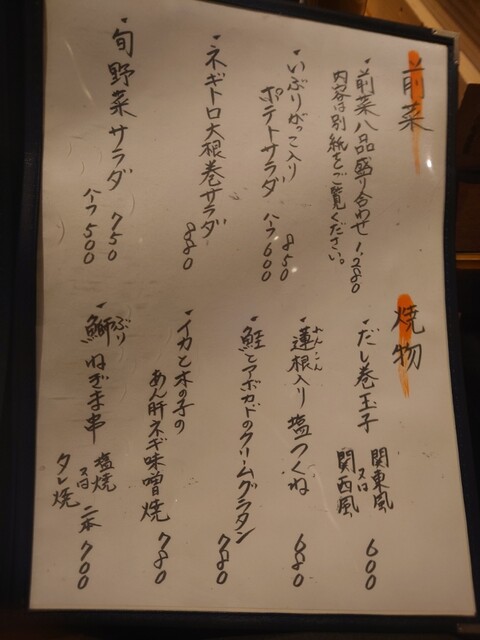 前菜
・前菜八品盛り合わせ 1,280
内容は別紙をご覧ください。
・いぶりがっこ入り
ポテトサラダ 850
ハーフ 600
・ネギトロ大根巻サラダ 880
・旬野菜サラダ 750
ハーフ 500
焼物
・だし巻玉子 関東風
又は
関西風 600
れんこん
・蓮根入り 塩つくね 680
・鮭とアボカドのクリームグラタン 780
・イカと木の子の
あん肝ネギ味噌焼 780
ぶり
・鰤ねぎま串 塩焼
又は
タレ焼 二本 700